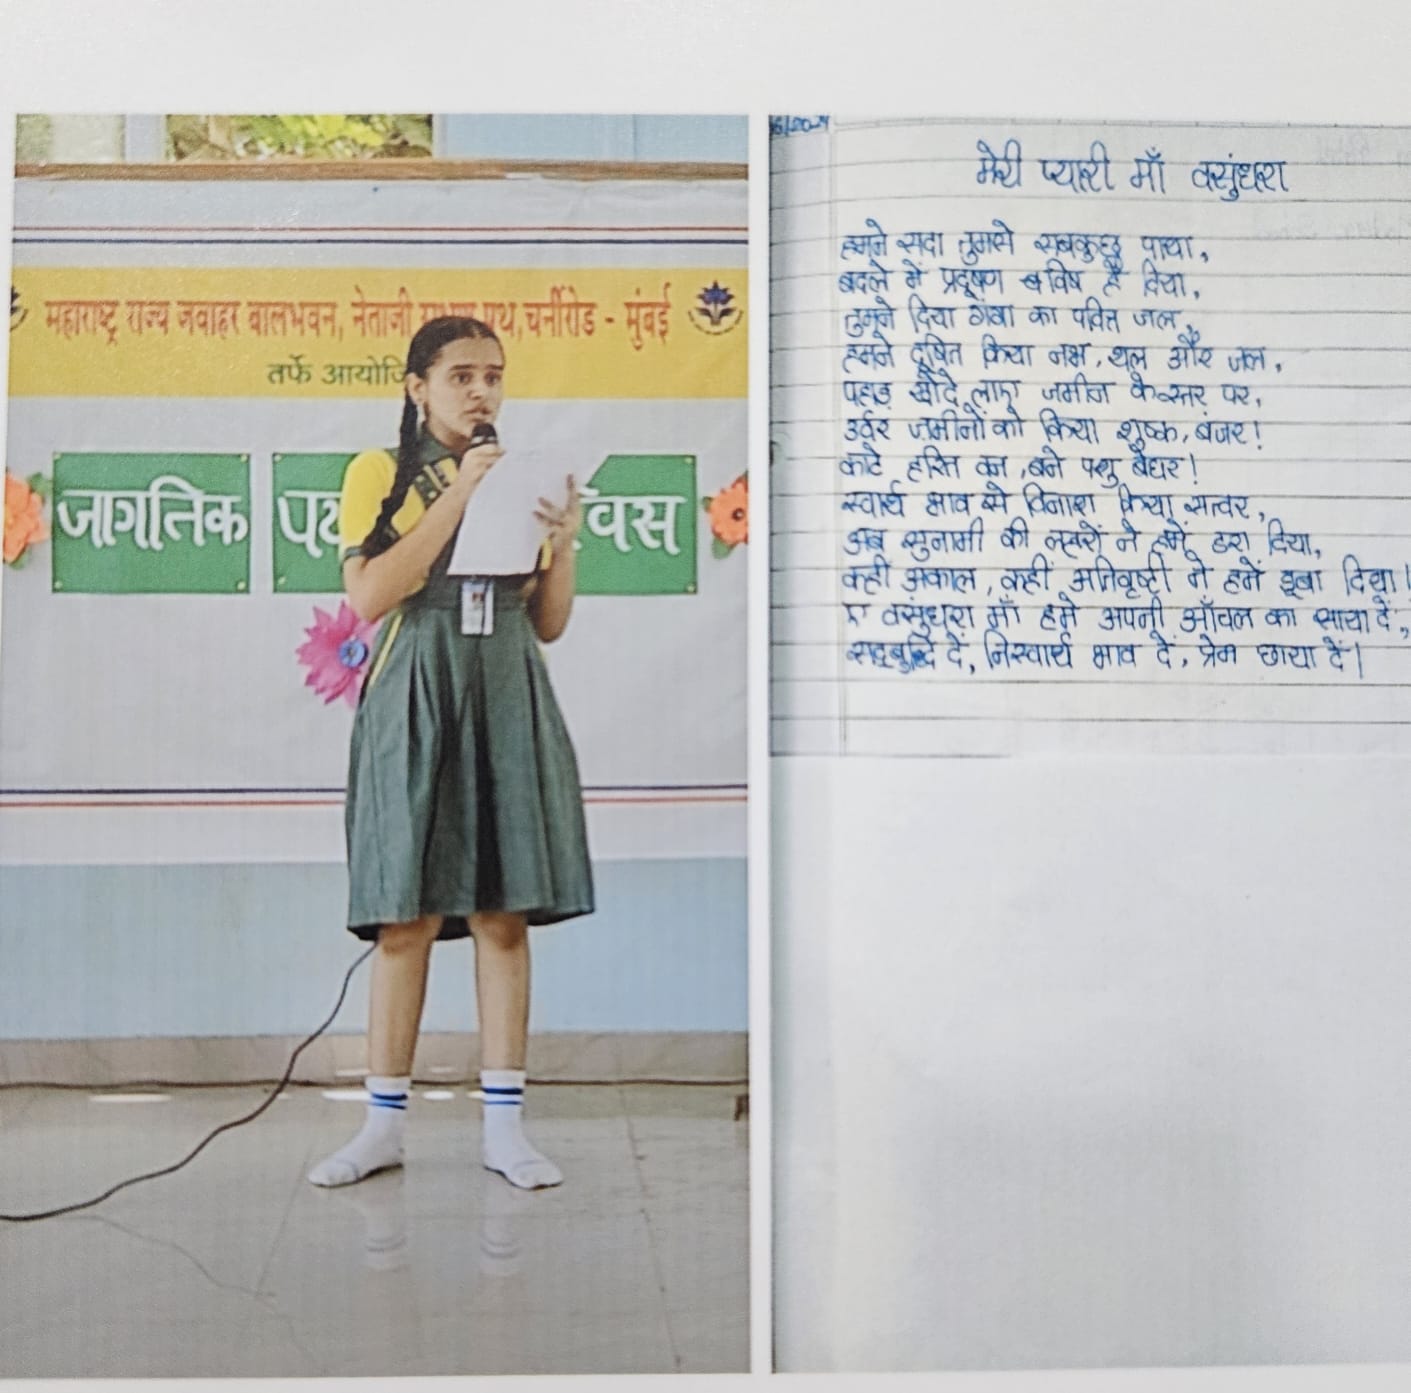 महाराष्ट्र राज्य जवाहर बालभवन, नेताजी सुभाष पथ, चर्नीरोड - मुंबई
तर्फे आयोजि
जागतिक पर्य वस
मेरी प्यारी माँ वसुंधरा
हमने सदा तुमसे सबकुछ पाया,
बदले में प्रदूषण व विष है दिया,
तुमने दिया गंगा का पवित्र जल,
हमने दूषित किया नभ, थल और जल,
पहाड़ खोदे लाए जमीन के स्तर पर,
उर्वर जमीनों को किया शुष्क, बंजर!
काटे हरित वन, बने पशु बेघर!
स्वार्थ भाव से विनाश किया सत्वर,
अब सुनामी की लहरों ने हमें डरा दिया,
कहीं अकाल, कहीं अतिवृष्टी ने हमें डूबा दिया!
ए वसुंधरा माँ हमे अपनी आँचल का साया दें,
सद्बुद्धि दें, निस्वार्थ भाव दें, प्रेम छाया दें।